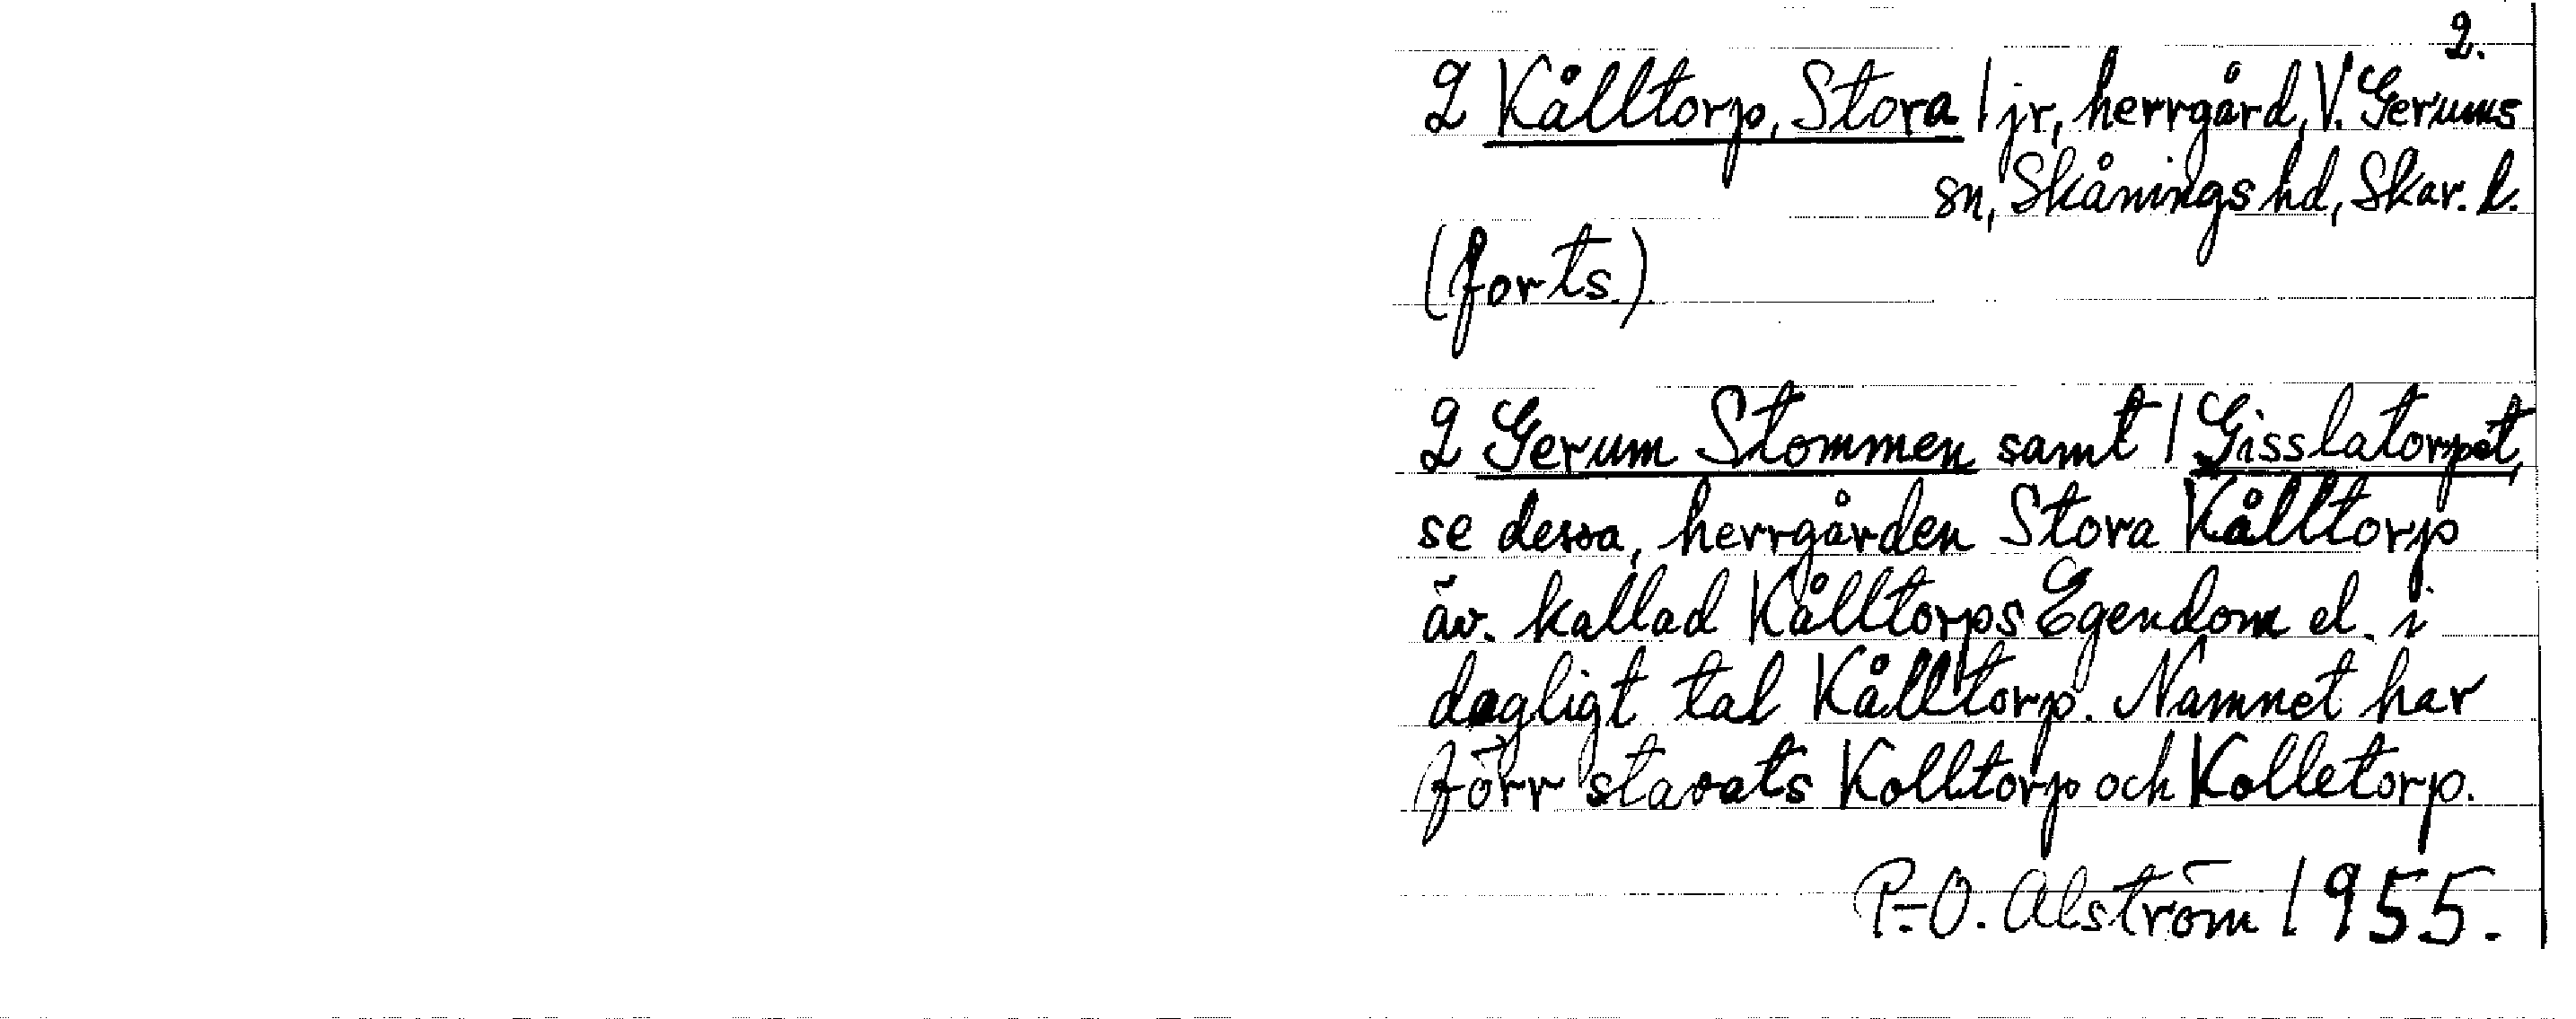 2.
2 Kålltorp, Stora / jr, herrgård, V. Gerums
sn, Skånings hd, Skar. l.
(forts.)
2 Gerum Stommen samt / Gisslatorpet,
se dessa, herrgården Stora Kålltorp
äv. kallad Kålltorps Egendom el. i
dagligt tal Kålltorp. Namnet har
förr stavats Kolltorp och Kolletorp.
P.-O. Alström 1955.